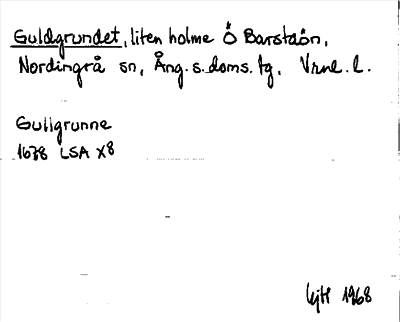 Guldgrundet, liten holme Ö Barstaön,
Nordingrå sn, Ång. s. doms. tg. Vrnl. l.
Gullgrunne
1678 LSA X8
1968